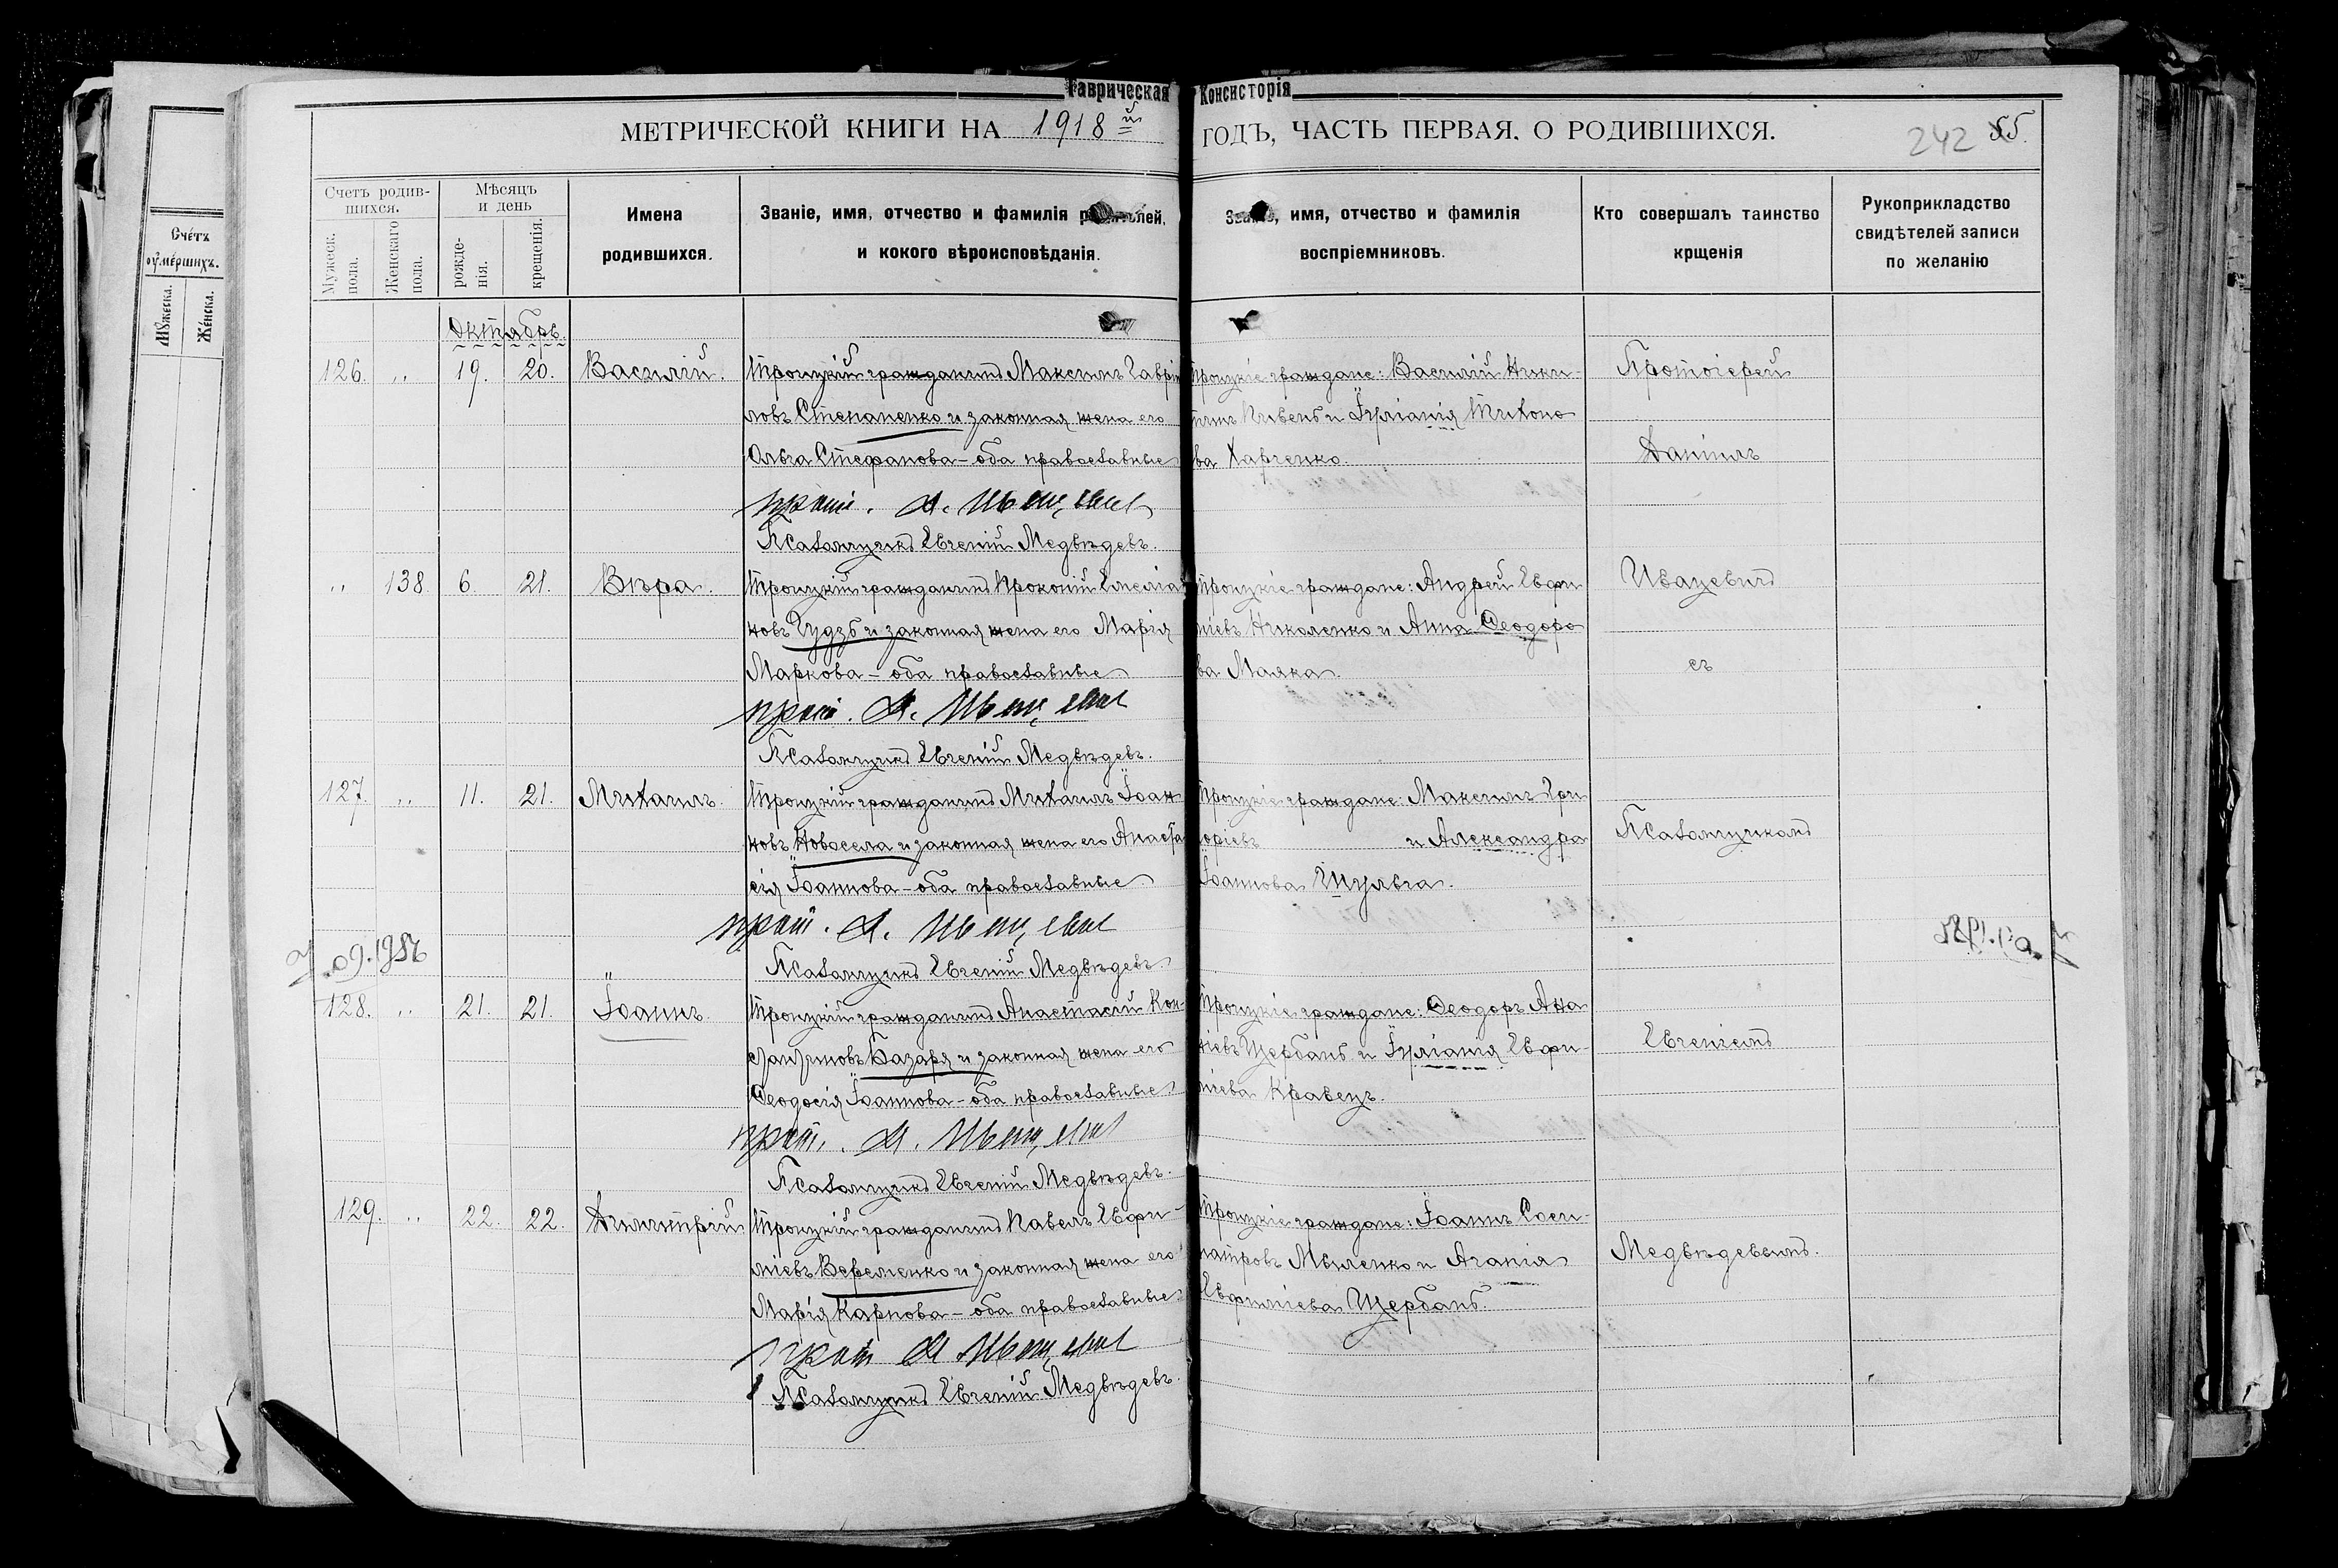 Таврическая Консисторія
МЕТРИЧЕСКОЙ КНИГИ НА 1918й ГОДЪ, ЧАСТЬ ПЕРВАЯ. О РОДИВШИХСЯ. 242 55.
Счетъ родив-
шихся.
Мужеск. пола.
Женскаго пола.
Мѣсяцъ
и день
рожде-
нія.
крещенія.
Имена
родившихся.
Званіе, имя, отчество и фамилія родителей,
и кокого вѣроисповѣданія.
Званіе, имя, отчество и фамилія
воспріемниковъ.
Кто совершалъ таинство
крщенія
Рукоприкладство
свидѣтелей записи
по желанію
Счетъ
умершихъ.
Мужеска.
Женска.
Октябрь.
126. " 19. 20. Василій.
Троицкій гражданинъ Максимъ Гаврі
ловъ Степаненко и законная жена его
Ольга Стефанова – оба православные
прот. А. Иваницкій
Псаломщикъ Евгеній Медвѣдевъ.
Троицкіе граждане: Василій Ники-
тинъ Кивенъ и Іуліанія Тихоно
ва Харченко.
" 138 6. 21. Вѣра.
Троицкій гражданинъ Прокопій Емеліа
новъ Гудзь и законная жена его Марія
Маркова – оба православные
прот. А.
Псаломщикъ Евгеній Медвѣдевъ.
Троицкіе граждане: Андрей Евфи
міевъ Николенко и Анна Ѳеодоро
ва Маяка.
127. " 11. 21. Михаилъ.
Троицкій гражданинъ Михаилъ Іоан
новъ Новосела и законная жена его Анаста
сія Іоаннова – оба православные
прот. А.
Псаломщикъ Евгеній Медвѣдевъ.
Троицкіе граждане: Максимъ Гри
горіевъ и Александра
Іоаннова Шульга.
128. " 21. 21. Іоаннъ.
Троицкій гражданинъ Анастасій Кон-
стантиновъ Базаря и законная жена его
Ѳеодосія Іоаннова – оба православные
прот. А.
Псаломщикъ Евгеній Медвѣдевъ.
Троицкіе граждане: Ѳеодоръ Ана
ніевъ Щербань и Іуліанія Евфи-
міева Кравецъ.
129. " 22. 22. Димитрій
Троицкій гражданинъ Павелъ Евфи-
міевъ Веременко и законная жена его
Марія Карпова – оба православные
прот А
Псаломщикъ Евгеній Медвѣдевъ.
Троицкіе граждане: Іоаннъ Соси-
патровъ Мыленко и Агапія
Евфиміева Щербань.
Протоіерей
Даніилъ
Ивацевичъ
съ
Псаломщикомъ
Евгеніемъ
Медвѣдевымъ.